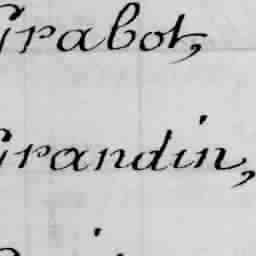 Grabot,
Grandin,